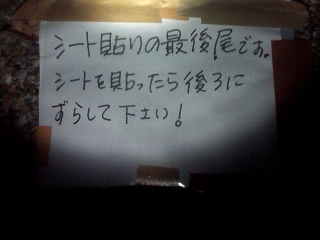 シート貼りの最後尾です。
シートを貼ったら後ろに
ずらして下さい!